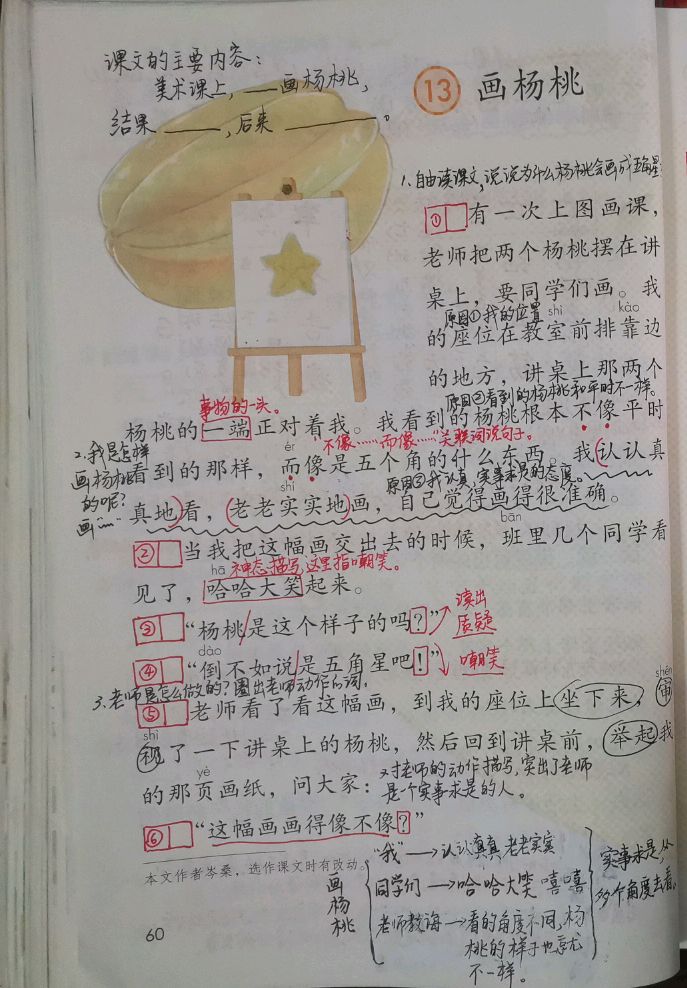 课文的主要内容：
美术课上，____画杨桃，
结果____，后来______。
13 画杨桃
1.自由读课文，说说为什么杨桃会画成五角星
① 有一次上图画课，
老师把两个杨桃摆在讲
桌上，要同学们画。我
原因①我的位置
shì kào
的座位在教室前排靠边
的地方，讲桌上那两个
原因②看到的杨桃和平时不一样。
事物的一头。
杨桃的一端正对着我。我看到的杨桃根本不像平时
"不像……而像……"关联词说句子。
2.我是怎样
画杨桃
的呢？
画"﹏"
ér
看到的那样，而像是五个角的什么东西。我认认真
原因③我认真，实事求是的态度。
shí
真地看，老老实实地画，自己觉得画得很准确。
bān
② 当我把这幅画交出去的时候，班里几个同学看
hā 神态描写，这里指嘲笑。
见了，哈哈大笑起来。
③ “杨桃/是这个样子的吗？” 读出
质疑
dào
④ “倒不如说/是五角星吧！” 嘲笑
3.老师是怎么做的？圈出老师动作的词。
shěn
⑤ 老师看了看这幅画，到我的座位上坐下来，审
shì
视了一下讲桌上的杨桃，然后回到讲桌前，举起我
yè
的那页画纸，问大家：
对老师的动作描写，突出了老师
是一个实事求是的人。
⑥ “这幅画画得像不像？”
本文作者岑桑，选作课文时有改动。
画杨桃
“我”→认认真真 老老实实
同学们→哈哈大笑 嘻嘻
老师教诲→看的角度不同，杨
桃的样子也就
不一样。
实事求是，从
多个角度去看。
60